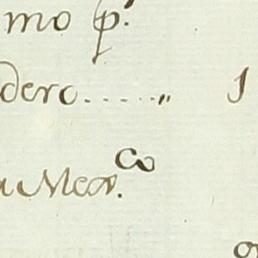 mo p.
dero......,, 1
a Mex.co